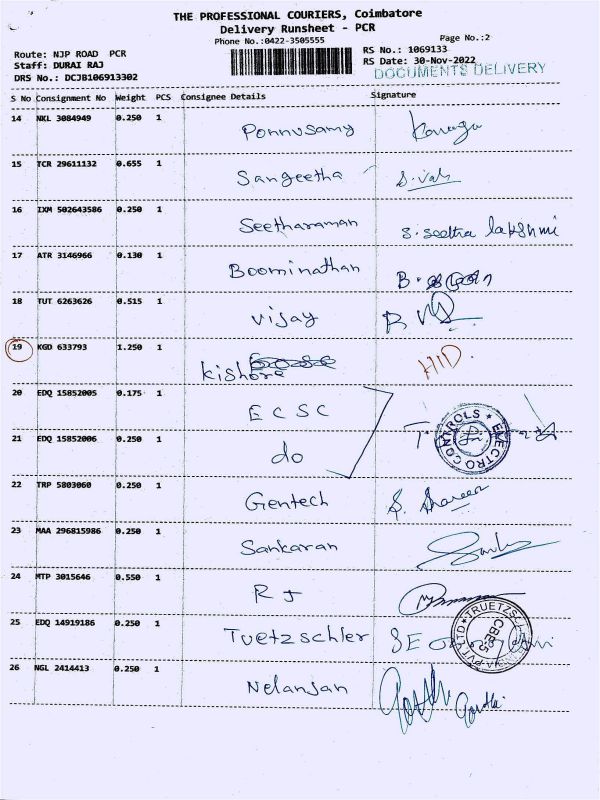 THE PROFESSIONAL COURIERS, Coimbatore
Delivery Runsheet - PCR
Phone No.:0422-3505555
Page No.:2
Route: NJP ROAD PCR
RS No.: 1069133
Staff: DURAI RAJ
RS Date: 30-Nov-2022
DRS No.: DCJB106913302
DOCUMENTS DELIVERY
S No Consignment No Weight PCS Consignee Details Signature
14 NKL 3084949 0.250 1 Ponnusamy
15 TCR 29611132 0.655 1 Sangeetha
16 IXM 502643586 0.250 1 Seetharaman S. Seetha lakshmi
17 ATR 3146966 0.130 1 Boominathan
18 TUT 6263626 0.515 1 vijay
19 KGD 633793 1.250 1 kishore
20 EDQ 15852005 0.175 1 ECSC
21 EDQ 15852006 0.250 1 do
ELECTRO CONTROLS
22 TRP 5803060 0.250 1 Gentech
23 MAA 296815986 0.250 1 Sankaran
24 MTP 3015646 0.550 1 RJ
25 EDQ 14919186 0.250 1 Tuetzschler
26 NGL 2414413 0.250 1 Nelanjan